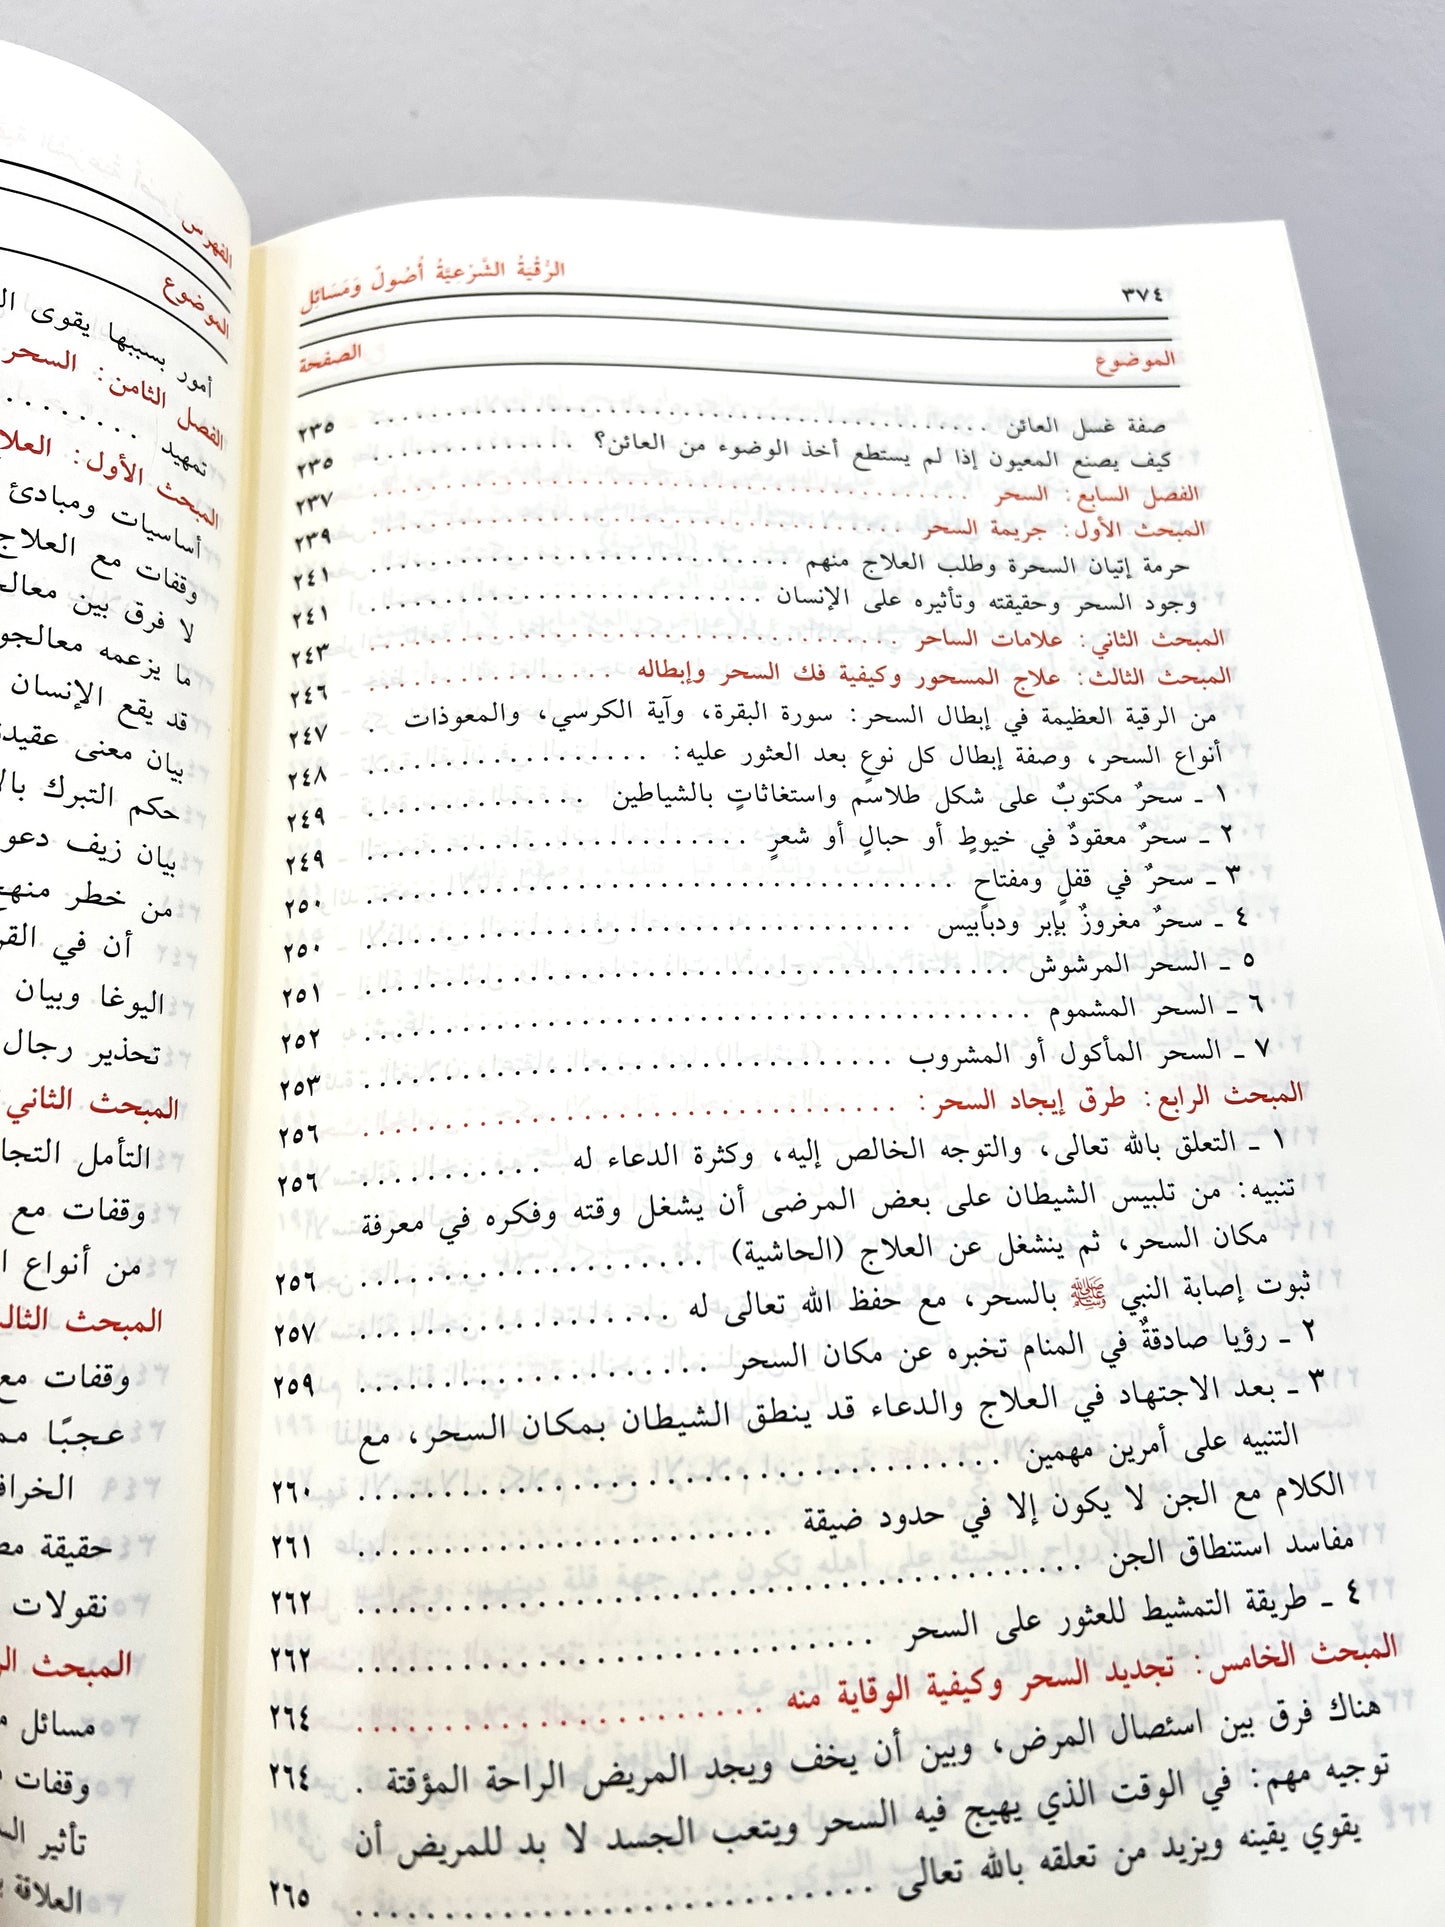 ٣٧٤ الرُّقْيَةُ الشَّرْعِيَّةُ أُصُولٌ وَمَسَائِل
الموضوع الصفحة
صفة غسل العائن ٢٣٥
كيف يصنع المعيون إذا لم يستطع أخذ الوضوء من العائن؟ ٢٣٥
الفصل السابع: السحر ٢٣٧
المبحث الأول: جريمة السحر ٢٣٩
حرمة إتيان السحرة وطلب العلاج منهم ٢٤١
وجود السحر وحقيقته وتأثيره على الإنسان ٢٤١
المبحث الثاني: علامات الساحر ٢٤٣
المبحث الثالث: علاج المسحور وكيفية فك السحر وإبطاله ٢٤٦
من الرقية العظيمة في إبطال السحر: سورة البقرة، وآية الكرسي، والمعوذات . ٢٤٧
أنواع السحر، وصفة إبطال كل نوعٍ بعد العثور عليه: ٢٤٨
١ ـ سحرٌ مكتوبٌ على شكل طلاسم واستغاثاتٍ بالشياطين ٢٤٩
٢ ـ سحرٌ معقودٌ في خيوطٍ أو حبالٍ أو شعرٍ ٢٤٩
٣ ـ سحرٌ في قفلٍ ومفتاحٍ ٢٥٠
٤ ـ سحرٌ مغروزٌ بإبر ودبابيس ٢٥٠
٥ ـ السحر المرشوش ٢٥١
٦ ـ السحر المشموم ٢٥٢
٧ ـ السحر المأكول أو المشروب ٢٥٣
المبحث الرابع: طرق إيجاد السحر: ٢٥٦
١ ـ التعلق بالله تعالى، والتوجه الخالص إليه، وكثرة الدعاء له ٢٥٦
تنبيه: من تلبيس الشيطان على بعض المرضى أن يشغل وقته وفكره في معرفة
مكان السحر، ثم ينشغل عن العلاج (الحاشية) ٢٥٦
ثبوت إصابة النبي ﷺ بالسحر، مع حفظ الله تعالى له ٢٥٧
٢ ـ رؤيا صادقةٌ في المنام تخبره عن مكان السحر ٢٥٩
٣ ـ بعد الاجتهاد في العلاج والدعاء قد ينطق الشيطان بمكان السحر، مع
التنبيه على أمرين مهمين ٢٦٠
الكلام مع الجن لا يكون إلا في حدود ضيقة ٢٦١
مفاسد استنطاق الجن ٢٦٢
٤ ـ طريقة التمشيط للعثور على السحر ٢٦٢
المبحث الخامس: تجديد السحر وكيفية الوقاية منه ٢٦٤
هناك فرق بين استئصال المرض، وبين أن يخف ويجد المريض الراحة المؤقتة . ٢٦٤
توجيه مهم: في الوقت الذي يهيج فيه السحر ويتعب الجسد لا بد للمريض أن
يقوي يقينه ويزيد من تعلقه بالله تعالى ٢٦٥
الفهرس
الموضوع
أمور بسببها يقوى
الفصل الثامن: السحر
تمهيد
المبحث الأول: العلا
أساسيات ومبادئ
وقفات مع العلاج
لا فرق بين
ما يزعمه
قد يقع الإنسان
بيان معنى
حكم التبرك
بيان زيف
من خطر
أن في
اليوغا وبيان
تحذير رجال
المبحث الثاني
التأمل
وقفات مع
من أنواع
المبحث
وقفات مع
عجبًا
حقيقة
نقولات
المبحث
مسائل
وقفات
تأثير
العلاقة